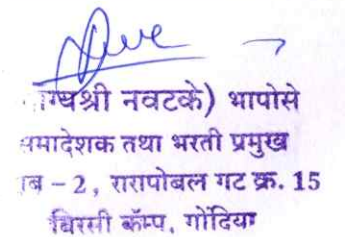 ग्यश्री नवटके) भापोसे
समादेशक तथा भरती प्रमुख
ब – 2, रारापोबल गट क्र. 15
बिरसी कॅम्प, गोंदिया